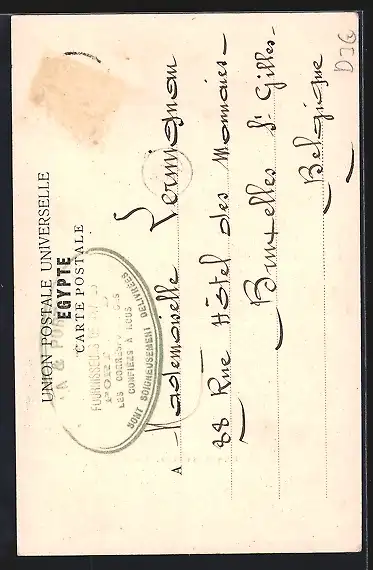 UNION POSTALE UNIVERSELLE
EGYPTE
CARTE POSTALE
FOURNISSEURS DE
LES CORRESP
CONFIÉES À LEUR
SONT SOIGNEUSEMENT DÉLIVRÉES
A Mademoiselle Vermignan
88 Rue Hôtel des Monnaies-
Bruxelles St Gilles-
Belgique